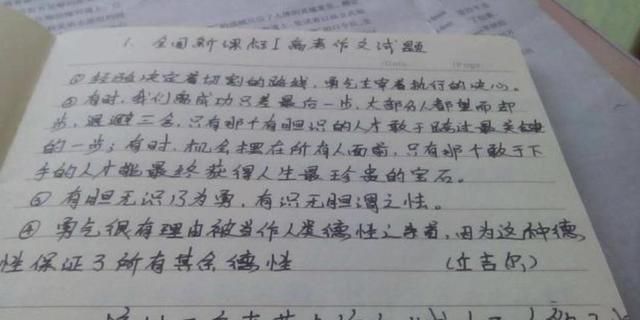 1. 全国新课标I高考作文试题
① 经验决定着切割的路线，勇气主宰着执行的决心。
② 有时，我们离成功只差最后一步，大部分人都望而却
步，退避三舍，只有那个有胆识的人才敢于跨过最关键
的一步；有时，机会摆在所有人面前，只有那个敢于下
手的人才能最终获得人生最珍贵的宝石。
③ 有胆无识乃为勇，有识无胆谓之怯。
④ 勇气很有理由被当作人类德性之首，因为这种德
性保证了所有其余德性 (丘吉尔)